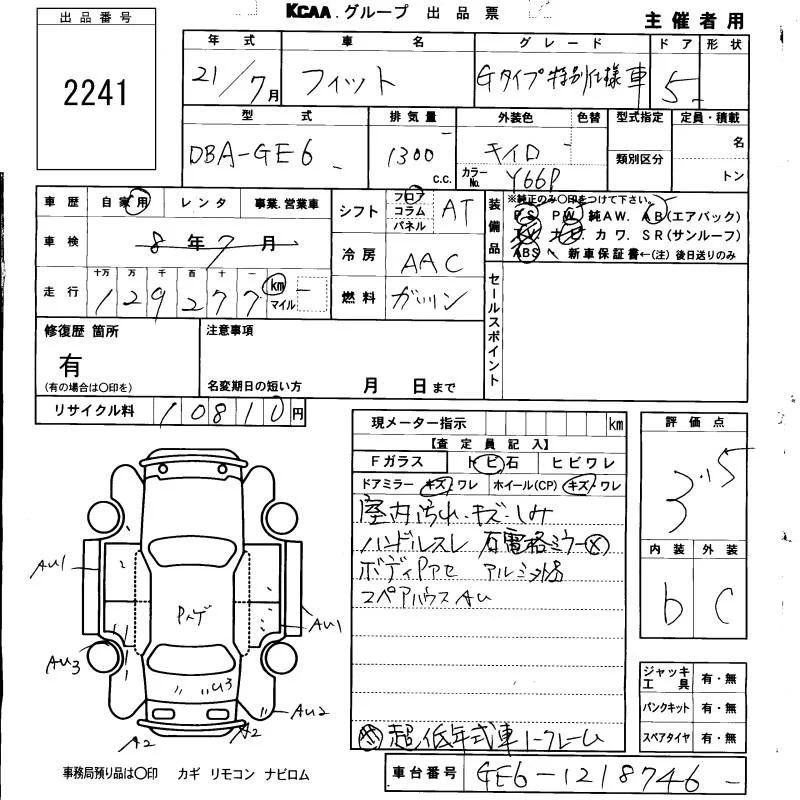 KCAA グループ 出品票
主催者用
出品番号
2241
年式 車名 グレード ドア 形状
21/7月 フィット Gタイプ特別仕様車 5
型式 排気量 外装色 色替 型式指定 定員・積載
DBA-GE6 1300 c.c. キイロ 名
カラーNo. Y66P 類別区分 トン
車歴 自家用 レンタ 事業.営業車
車検 8年7月
走行 十万 万 千 百 十 一
129277 km マイル
シフト フロア コラム パネル AT
冷房 AAC
燃料 ガソリン
装備品 ※純正のみ〇印をつけて下さい。
PS PW 純AW. AB(エアバック)
TV. ナビ カワ. SR(サンルーフ)
ABS 新車保証書←(注)後日送りのみ
セールスポイント
修復歴 箇所
有
(有の場合は〇印を)
注意事項
名変期日の短い方 月 日まで
リサイクル料 10810円
現メーター指示 km
【査定員記入】
Fガラス トビ石 ヒビワレ
ドアミラー キズ・ワレ ホイール(CP) キズ・ワレ
室内汚れ・キズ・シミ
ハンドルスレ 右電格ミラー
ボディPアセ アルミ外品
スペアハウスAU
超低年式車
評価点
3.5
内装 外装
b C
AU1
AU3
AU1
U3
AU2
A2
A2
ジャッキ工具 有・無
パンクキット 有・無
スペアタイヤ 有・無
事務局預り品は〇印 カギ リモコン ナビロム
車台番号 GE6-1218746